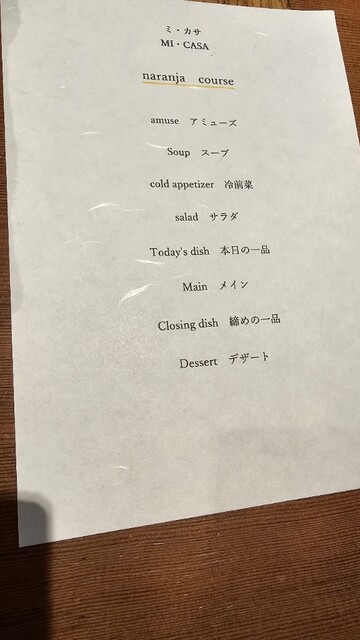 ミ・カサ
MI・CASA
naranja course
amuse アミューズ
Soup スープ
cold appetizer 冷前菜
salad サラダ
Today's dish 本日の一品
Main メイン
Closing dish 締めの一品
Dessert デザート